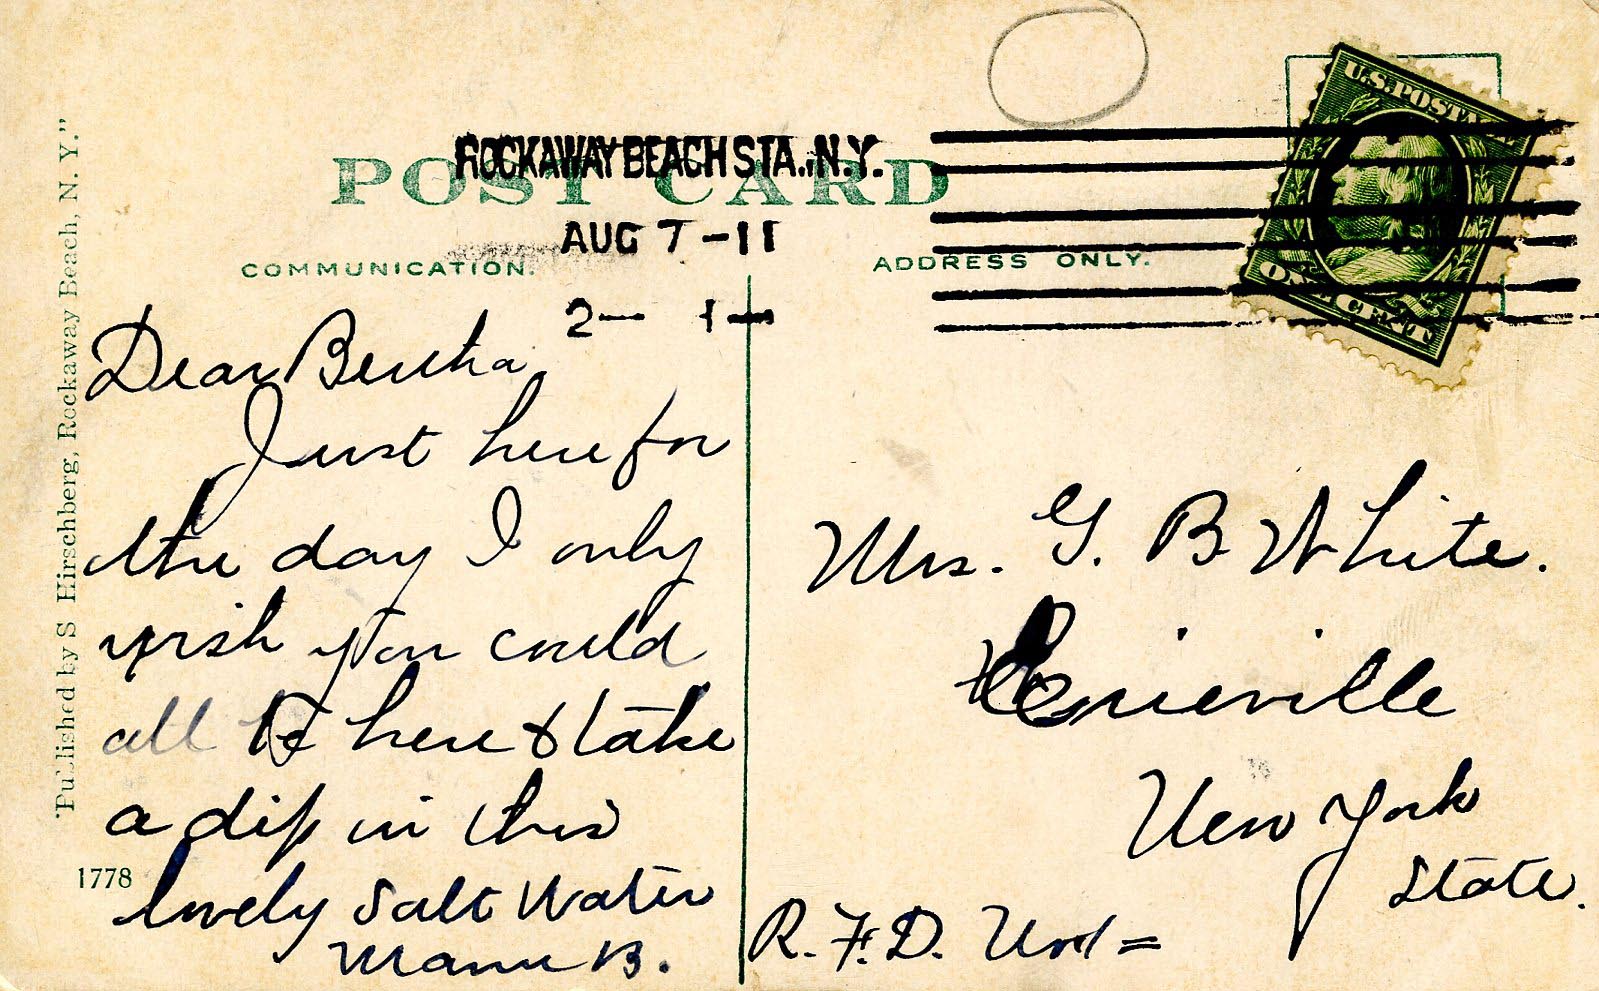 POST CARD
ROCKAWAY BEACH STA., N.Y.
AUG 7 - 11
2— 1—
COMMUNICATION.
ADDRESS ONLY.
U.S. POSTAGE
ONE CENT
"Published by S Hirschberg, Rockaway Beach, N. Y."
1778
Dear Bertha
Just here for
the day I only
wish you could
all be here & take
a dip in this
lovely Salt Water
B.
Mrs. G. B White.
Erieville
New York
State.
R. F. D. No 1 =